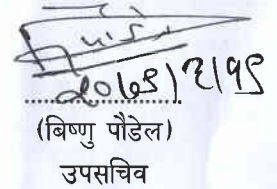 २०७९/३/१९
(बिष्णु पौडेल)
उपसचिव